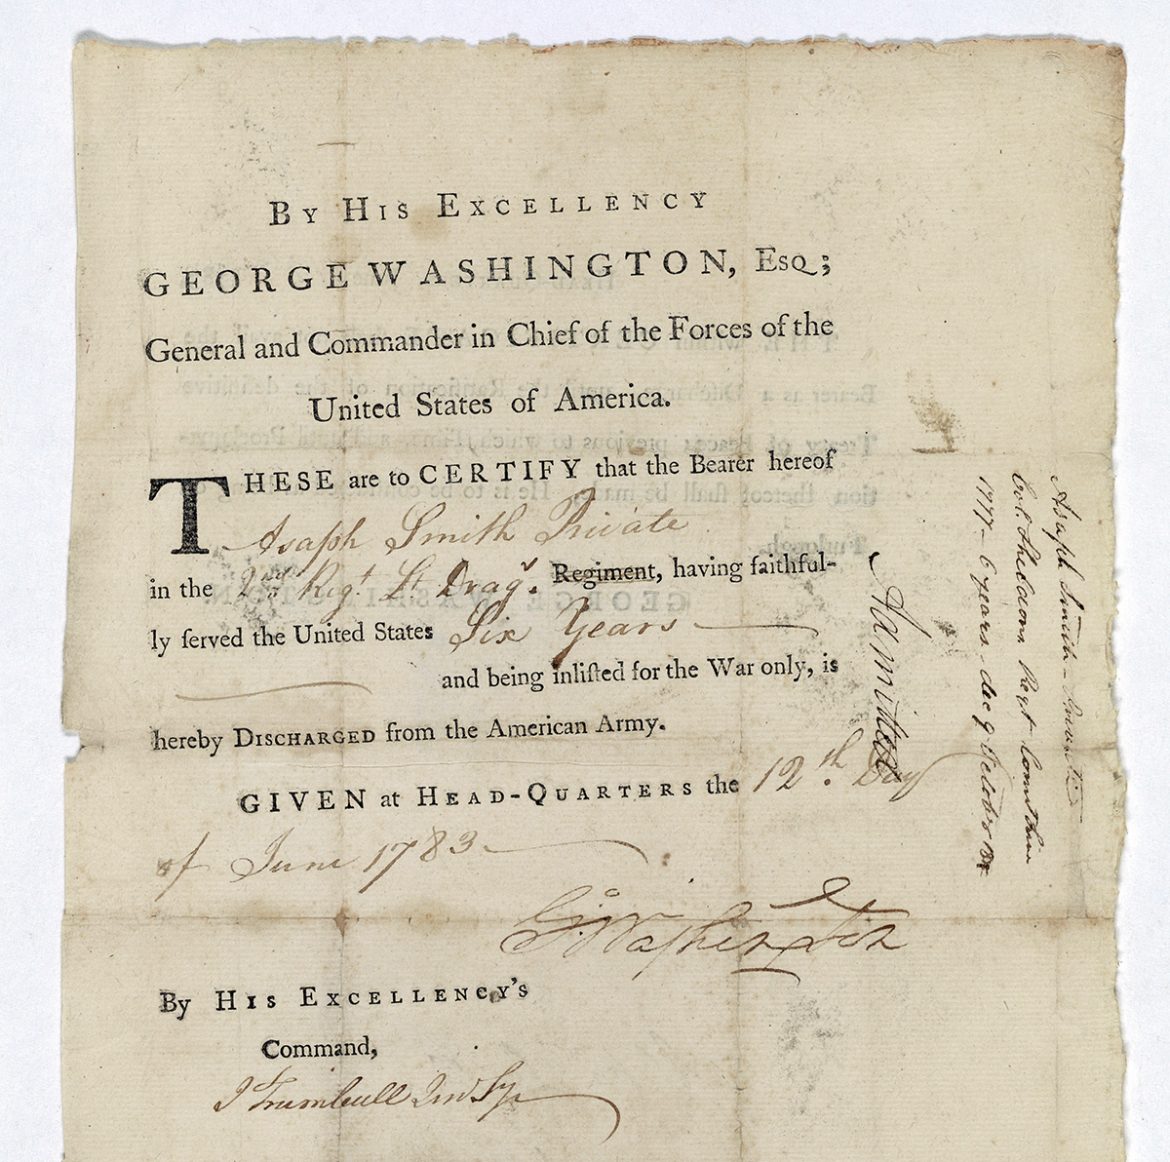 By His Excellency
GEORGE WASHINGTON, Esq;
General and Commander in Chief of the Forces of the
United States of America.
THESE are to CERTIFY that the Bearer hereof
Asaph Smith Private
in the 2nd Regt Lt Drags. Regiment, having faithful-
ly served the United States Six Years
and being inlisted for the War only, is
hereby Discharged from the American Army.
GIVEN at Head-Quarters the 12th Day
of June 1783
Go: Washington
By His Excellency's
Command,
J Trumbull Jun Sy
Admitted
Asaph Smith
Col. Sheldons Regt Connt line
1777 - 6 years - dec 9